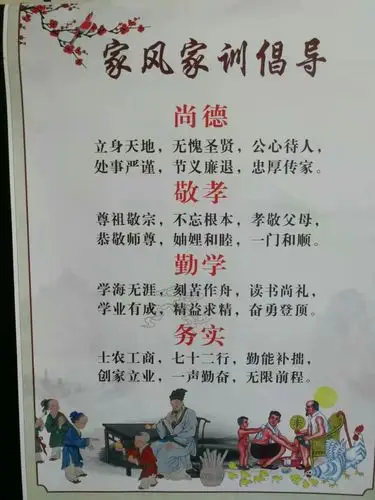 家风家训倡导
尚德
立身天地，无愧圣贤，公心待人，
处事严谨，节义廉退，忠厚传家。
敬孝
尊祖敬宗，不忘根本，孝敬父母，
恭敬师尊，妯娌和睦，一门和顺。
勤学
学海无涯，刻苦作舟，读书尚礼，
学业有成，精益求精，奋勇登顶。
务实
士农工商，七十二行，勤能补拙，
创家立业，一声勤奋，无限前程。